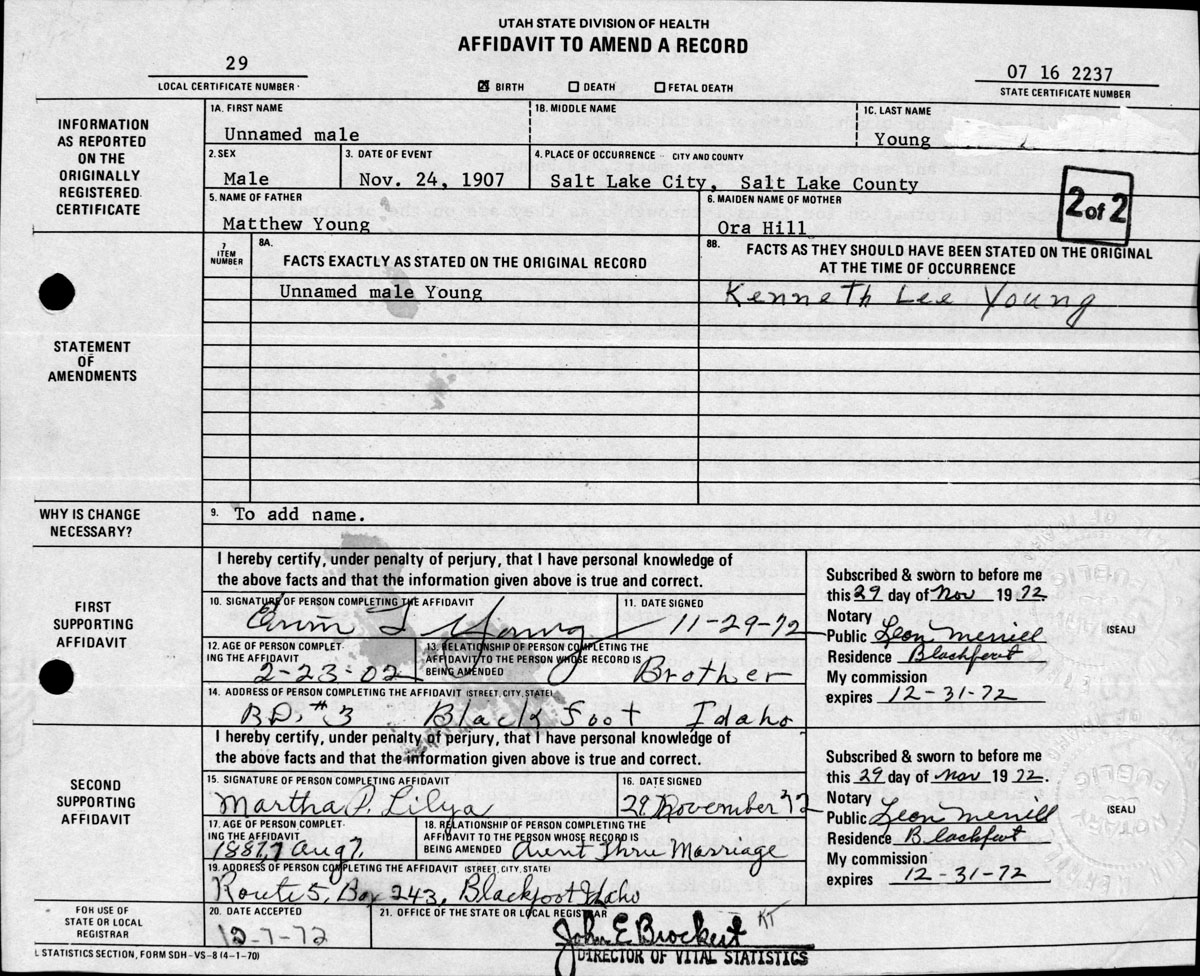 UTAH STATE DIVISION OF HEALTH
AFFIDAVIT TO AMEND A RECORD
29
LOCAL CERTIFICATE NUMBER
☒ BIRTH ☐ DEATH ☐ FETAL DEATH
07 16 2237
STATE CERTIFICATE NUMBER
INFORMATION
AS REPORTED
ON THE
ORIGINALLY
REGISTERED
CERTIFICATE
1A. FIRST NAME 1B. MIDDLE NAME 1C. LAST NAME
Unnamed male Young
2. SEX 3. DATE OF EVENT 4. PLACE OF OCCURRENCE - CITY AND COUNTY
Male Nov. 24, 1907 Salt Lake City, Salt Lake County
5. NAME OF FATHER 6. MAIDEN NAME OF MOTHER
Matthew Young Ora Hill
2 of 2
STATEMENT
OF
AMENDMENTS
7
ITEM
NUMBER
8A.
FACTS EXACTLY AS STATED ON THE ORIGINAL RECORD
8B. FACTS AS THEY SHOULD HAVE BEEN STATED ON THE ORIGINAL
AT THE TIME OF OCCURRENCE
Unnamed male Young Kenneth Lee Young
WHY IS CHANGE
NECESSARY?
9. To add name.
FIRST
SUPPORTING
AFFIDAVIT
I hereby certify, under penalty of perjury, that I have personal knowledge of
the above facts and that the information given above is true and correct.
10. SIGNATURE OF PERSON COMPLETING THE AFFIDAVIT 11. DATE SIGNED
Young 11-29-72
12. AGE OF PERSON COMPLET-
ING THE AFFIDAVIT
2-23-02
13. RELATIONSHIP OF PERSON COMPLETING THE
AFFIDAVIT TO THE PERSON WHOSE RECORD IS
BEING AMENDED Brother
14. ADDRESS OF PERSON COMPLETING THE AFFIDAVIT (STREET, CITY, STATE)
RD. #3 Black foot Idaho
Subscribed & sworn to before me
this 29 day of Nov 1972.
Notary
Public Leon Merrill
(SEAL)
Residence Blackfoot
My commission
expires 12-31-72
SECOND
SUPPORTING
AFFIDAVIT
I hereby certify, under penalty of perjury, that I have personal knowledge of
the above facts and that the information given above is true and correct.
15. SIGNATURE OF PERSON COMPLETING AFFIDAVIT 16. DATE SIGNED
Martha P. Lilya 29 November 72
17. AGE OF PERSON COMPLET-
ING THE AFFIDAVIT
18. RELATIONSHIP OF PERSON COMPLETING THE
AFFIDAVIT TO THE PERSON WHOSE RECORD IS
BEING AMENDED Aunt Thru Marriage
19. ADDRESS OF PERSON COMPLETING THE AFFIDAVIT (STREET, CITY, STATE)
Route 5, Box 243, Blackfoot Idaho
Subscribed & sworn to before me
this 29 day of Nov 1972.
Notary
Public Leon Merrill
(SEAL)
Residence Blackfoot
My commission
expires 12-31-72
FOR USE OF
STATE OR LOCAL
REGISTRAR
20. DATE ACCEPTED 21. OFFICE OF THE STATE OR LOCAL REGISTRAR
12-7-72 John E Brockert KT
DIRECTOR OF VITAL STATISTICS
L STATISTICS SECTION, FORM SDH-VS-8 (4-1-70)